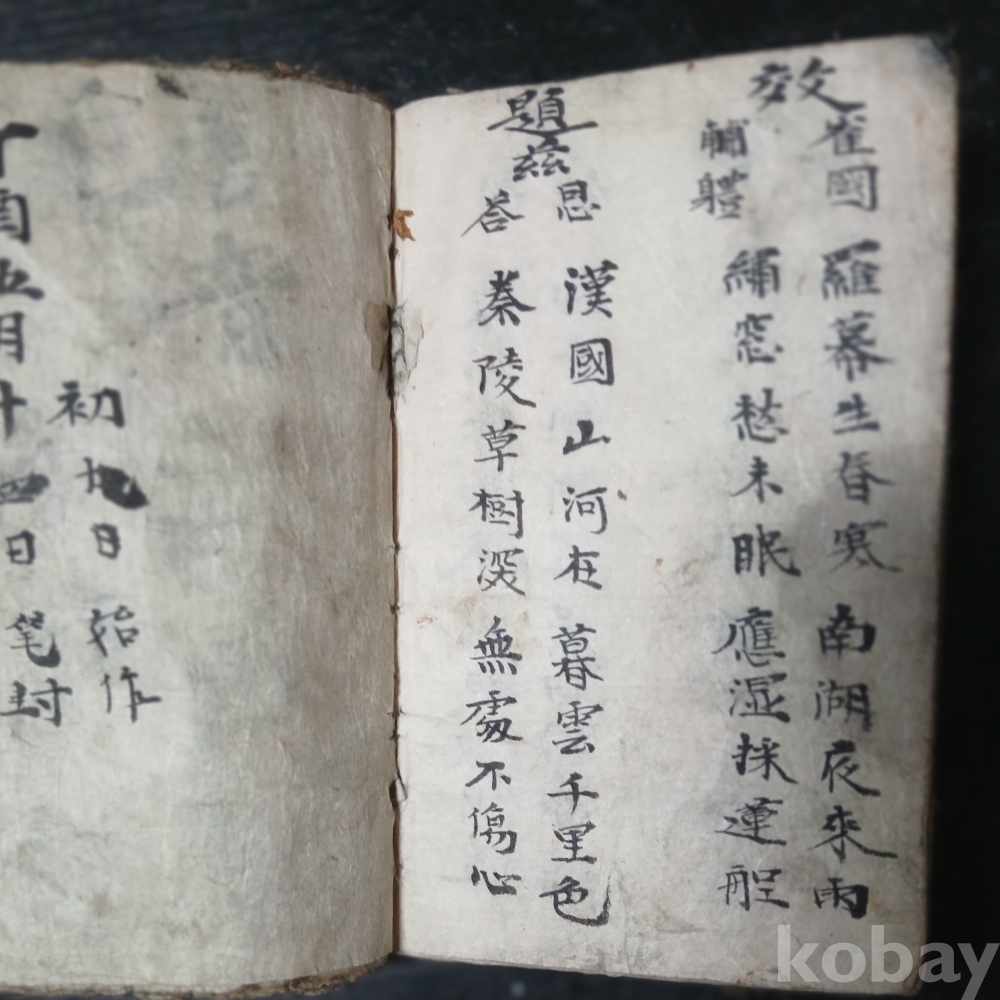 效
崔國
輔軆
羅幕生春寒 南湖夜來雨
繡窓愁未眠 應湿採蓮舡
題兹
恩
荅
漢國山河在 暮雲千里色
秦陵草樹深 無處不傷心
丁酉五月
初日 始作
十四日 笔封
kobay